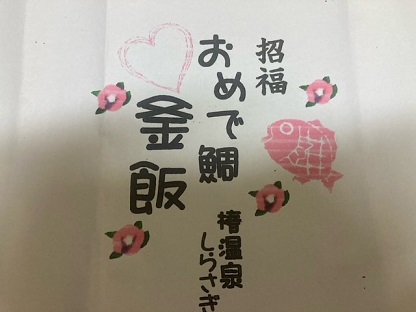 招福
おめで鯛
釜飯
椿温泉
しらさぎ